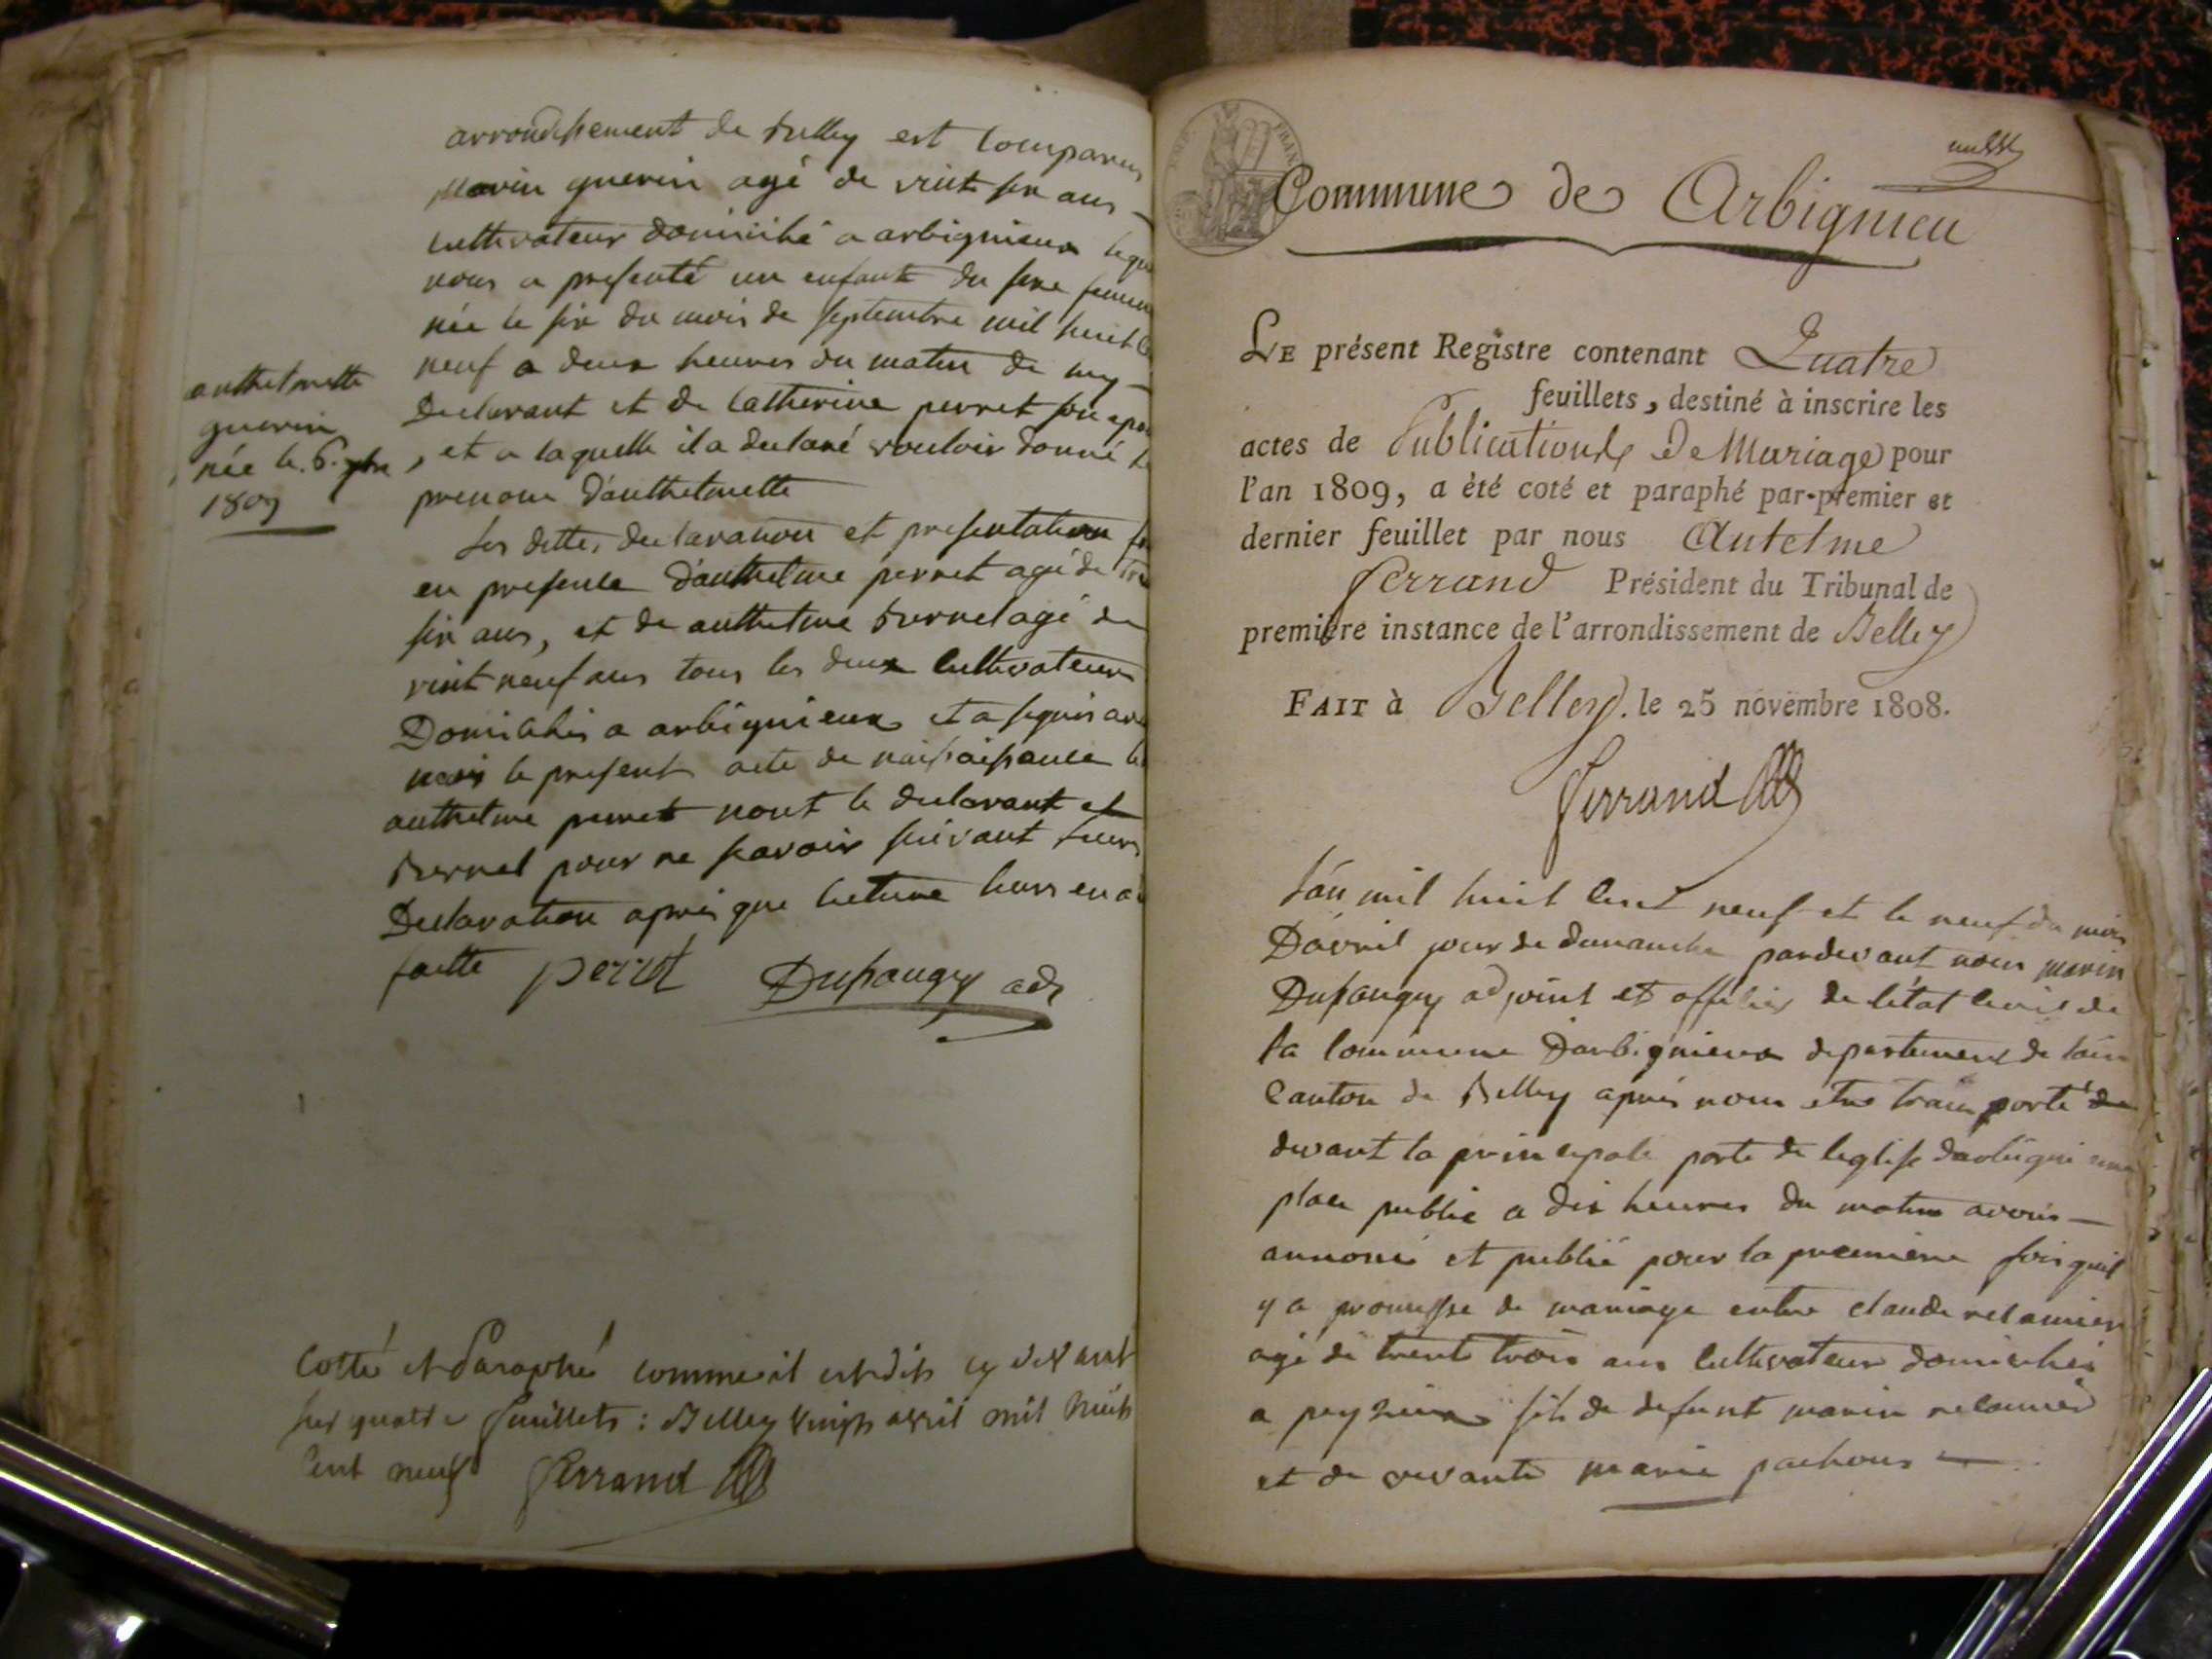 arrondissement de belley est comparus
marin guerin agé de vint six ans
cultivateur domicilié a arbignieux
nous a presenté un enfant du sexe
née le six du mois de septembre mil huit
neuf a deux heures du matin de
declarant et de Catherine perret son
, et a laquelle il a declaré vouloir donné
prenom d'anthelmette
anthelmette
guerin
née le 6. 7bre
1809
les dittes declaration et presentation
en presence d'anthelme perret agé de
six ans, et de anthelme burnel agé de
vint neuf ans tous les deux cultivateurs
Domiciliés a arbignieux et a
le present acte de
anthelme perret nont le declarant et
burnel pour ne savoir suivant leurs
Declaration après que lecture leurs en a
faitte perret Dupaugey adj
Cotté et Paraphé comme il est dit cy devant
sur quatre feuillets : Belley vingt avril mil huit
cent neuf Ferrand
Commune de Arbignieu
LE présent Registre contenant Quatre
feuillets, destiné à inscrire les
actes de Publications De Mariage pour
l'an 1809, a été coté et paraphé par-premier et
dernier feuillet par nous Antelme
Ferrand Président du Tribunal de
première instance de l'arrondissement de Belley
FAIT à Belley. le 25 novembre 1808.
Ferrand
L'an mil huit cent neuf et le neuf du mois
D'avril jour de dimanche pardevant nous marin
Dupaugey adjoint et officier de l'état civil de
la commune D'arbignieux departement de l'ain
Canton de Belley après nous etre transporté de
devant la principale porte de leglise
place public a dix heures du matin avons
annoncé et publié pour la premiere fois quil
y a promesse de mariage entre claude
agé de trent trois ans cultivateur domicilié
a peyzieux fils de defunt marin
et de vivante marie pachoux